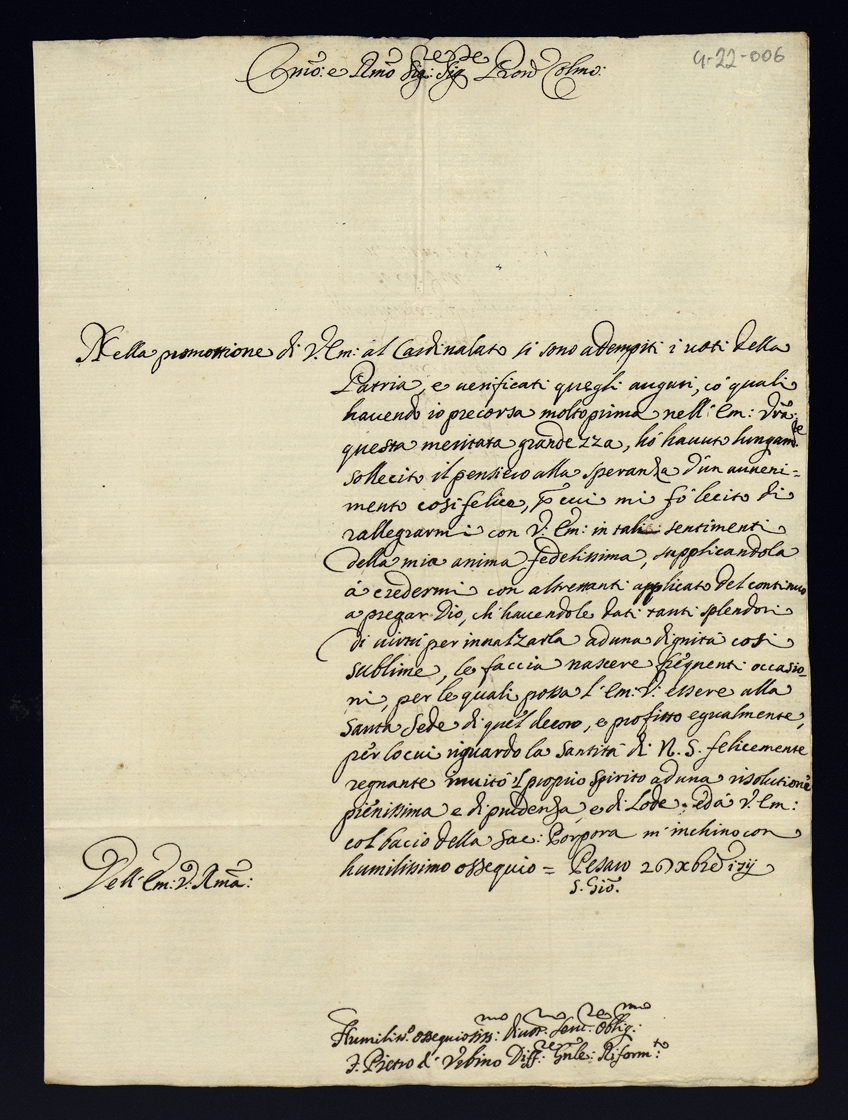 4-22-006
Emo: e Rmo Sig:re Sig:re Pron Colmo:
Nella promottione di V. Em: al Cardinalato si sono adempiti i voti della
Patria, e verificati quegli auguri, co' quali
havendo io precorsa molto prima nell' Em: Vra:
questa meritata grandezza, hò havuto lungam:te
sollecito il pensiero alla speranza d'un avveni=
mento così felice, p cui mi fò lecito di
rallegrarmi con V. Em: in tali sentimenti
della mia anima fedelissima, supplicandola
à credermi con altrettanti applicato del continuo
a pregar Dio, ch' havendole dati tanti splendori
di virtù per innalzarla ad una dignità così
sublime, le faccia nascere frequenti occasio-
ni, per le quali possa l' Em: V: essere alla
Santa Sede di quel decoro, e profitto egualmente,
per lo cui riguardo la Santità di N. S. felicemente
regnante invitò 'l proprio spirito ad una risolutione
pienissima e di prudenza, e di Lode. ed à V. Em:
col bacio della Sac: Porpora m' inchino con
humilissimo ossequio = Pesaro 26 Xbre
S. Gio.
Dell' Em: V. Rma:
Humiliss:o ossequiosiss:mo Divot:mo Ser:re Oblig:mo
F. Pietro d' Urbino Diff:re Gnle: Riform:to